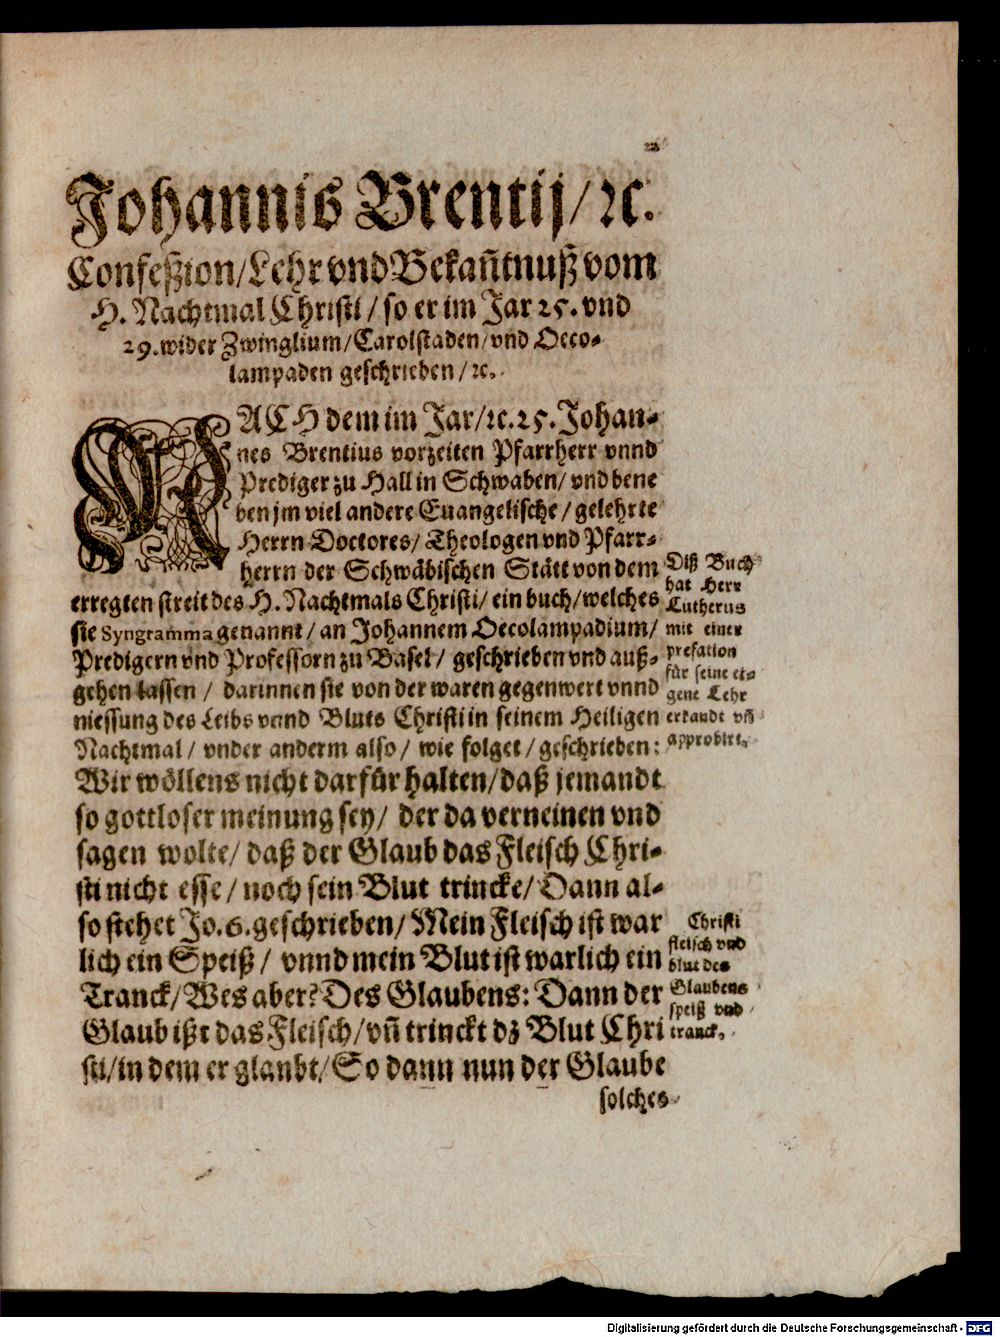 Johannis Brentij/ ꝛc.
Confeßzion/Lehr vnd Bekañtnuß vom
H. Nachtmal Christi / so er im Jar 25. vnd
29. wider Zwinglium/Carolstaden/vnd Oeco-
lampaden geschrieben / ꝛc.
NACH dem im Jar/ꝛc.25. Johan-
nes Brentius vorzeiten Pfarrherr vnnd
Prediger zu Hall in Schwaben/ vnd bene
ben jm viel andere Euangelische / gelehrte
Herrn Doctores/ Theologen vnd Pfarr-
herrn der Schwäbischen Stätt von dem
erregten streit des H. Nachtmals Christi/ ein buch/welches
sie Syngramma genannt / an Johannem Oecolampadium/
Predigern vnd Professorn zu Basel / geschrieben vnd auß-
gehen lassen / darinnen sie von der waren gegenwert vnnd
niessung des Leibs vnnd Bluts Christi in seinem Heiligen
Nachtmal / vnder anderm also / wie folget / geschrieben:
Diß Buch
hat Herr
Lutherus
mit einer
prefation
für seine ei-
gene Lehr
erkandt vñ
approbirt.
Wir wöllens nicht darfür halten/daß jemandt
so gottloser meinung sey/ der da verneinen vnd
sagen wolte/ daß der Glaub das Fleisch Chri-
sti nicht esse / noch sein Blut trincke/ Dann al-
so stehet Jo.6. geschrieben/ Mein Fleisch ist war
lich ein Speiß / vnnd mein Blut ist warlich ein
Tranck/ Wes aber? Des Glaubens: Dann der
Glaub ißt das Fleisch/ vñ trinckt dz Blut Chri
sti/in dem er glaubt/ So dann nun der Glaube
Christi
fleisch vnd
blut des
Glaubens
speiß vnd
tranck.
solches
Digitalisierung gefördert durch die Deutsche Forschungsgemeinschaft - DFG